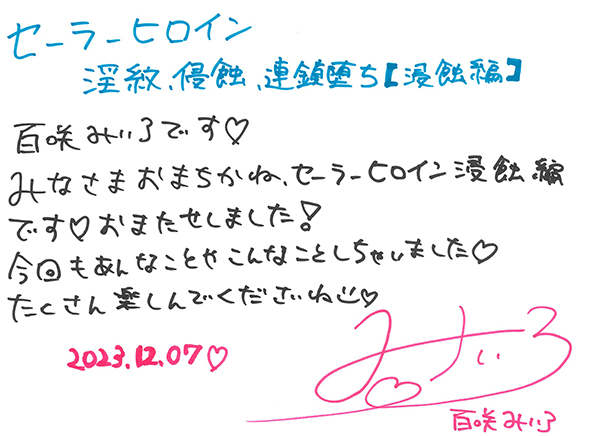 セーラーヒロイン
淫紋、侵蝕、連鎖堕ち【浸蝕編】
百咲みいろです♡
みなさまおまちかね、セーラーヒロイン浸蝕編
です♡おまたせしました!
今回もあんなことやこんなことしちゃいました♡
たくさん楽しんでくださいね♡
2023.12.07♡
みいろ
百咲みいろ